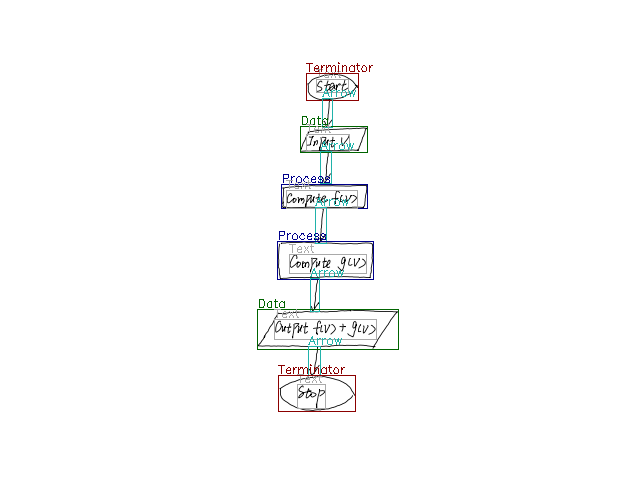 Terminator
Text
Start
Arrow
Data
Text
Input V
Arrow
Process
Text
Compute f(V)
Arrow
Process
Text
Compute g(V)
Arrow
Data
Text
Output f(V) + g(V)
Arrow
Terminator
Text
Stop